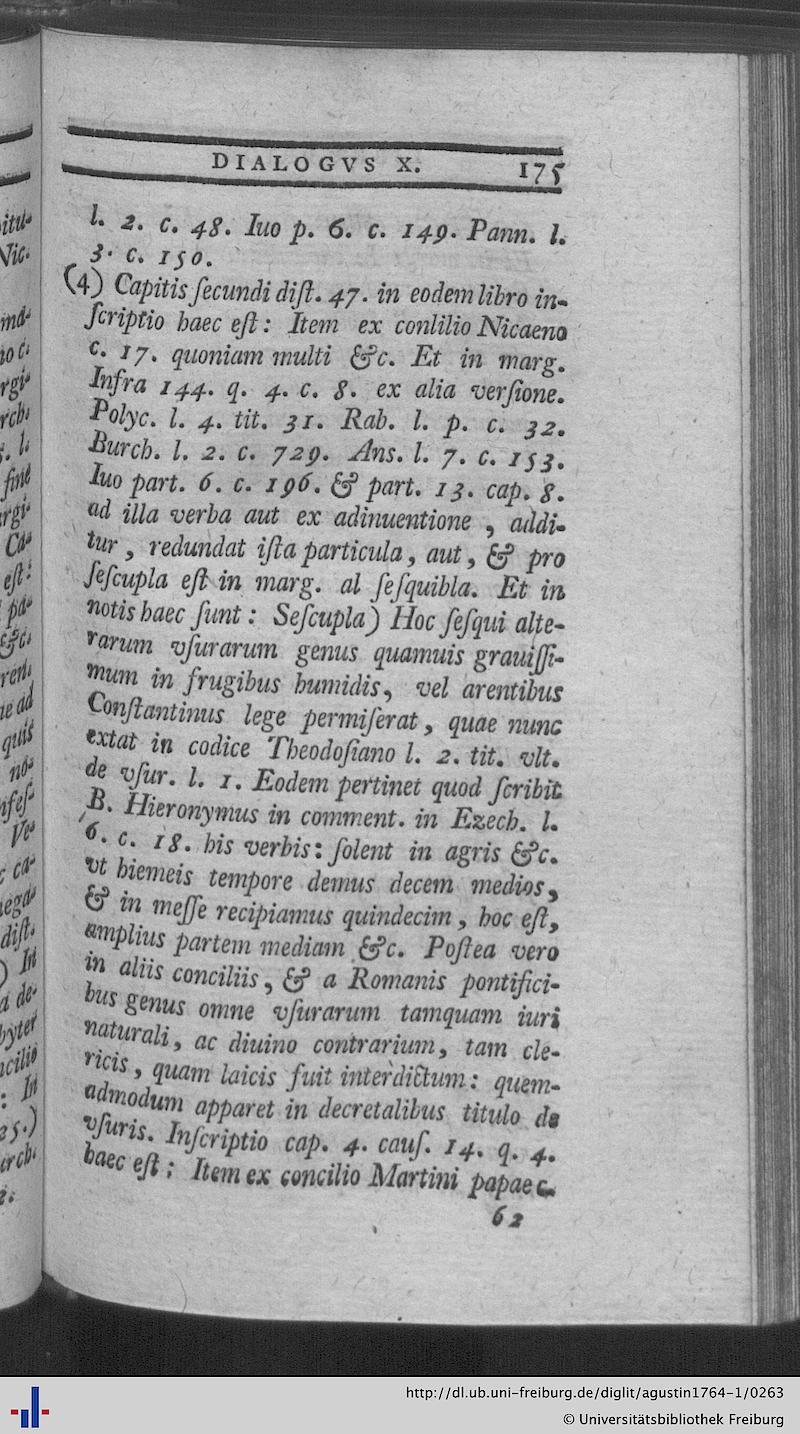 DIALOGVS X. 175
l. 2. c. 48. Iuo p. 6. c. 149. Pann. l.
3. c. 150.
(4) Capitis ſecundi diſt. 47. in eodem libro in-
ſcriptio haec eſt: Item ex conlilio Nicaeno
c. 17. quoniam multi &c. Et in marg.
Infra 144. q. 4. c. 8. ex alia verſione.
Polyc. l. 4. tit. 31. Rab. l. p. c. 32.
Burch. l. 2. c. 729. Ans. l. 7. c. 153.
Iuo part. 6. c. 196. & part. 13. cap. 8.
ad illa verba aut ex adinuentione, addi-
tur, redundat iſta particula, aut, & pro
ſeſcupla eſt in marg. al ſeſquibla. Et in
notis haec ſunt: Seſcupla) Hoc ſeſqui alte-
rarum vſurarum genus quamuis grauiſſi-
mum in frugibus humidis, vel arentibus
Conſtantinus lege permiſerat, quae nunc
extat in codice Theodoſiano l. 2. tit. vlt.
de vſur. l. 1. Eodem pertinet quod ſcribit
B. Hieronymus in comment. in Ezech. l.
6. c. 18. his verbis: ſolent in agris &c.
vt hiemeis tempore demus decem medios,
& in meſſe recipiamus quindecim, hoc eſt,
amplius partem mediam &c. Poſtea vero
in aliis conciliis, & a Romanis pontifici-
bus genus omne vſurarum tamquam iuri
naturali, ac diuino contrarium, tam cle-
ricis, quam laicis fuit interdictum: quem-
admodum apparet in decretalibus titulo de
vſuris. Inſcriptio cap. 4. cauſ. 14. q. 4.
haec eſt: Item ex concilio Martini papae c.
62
http://dl.ub.uni-freiburg.de/diglit/agustin1764-1/0263
© Universitätsbibliothek Freiburg